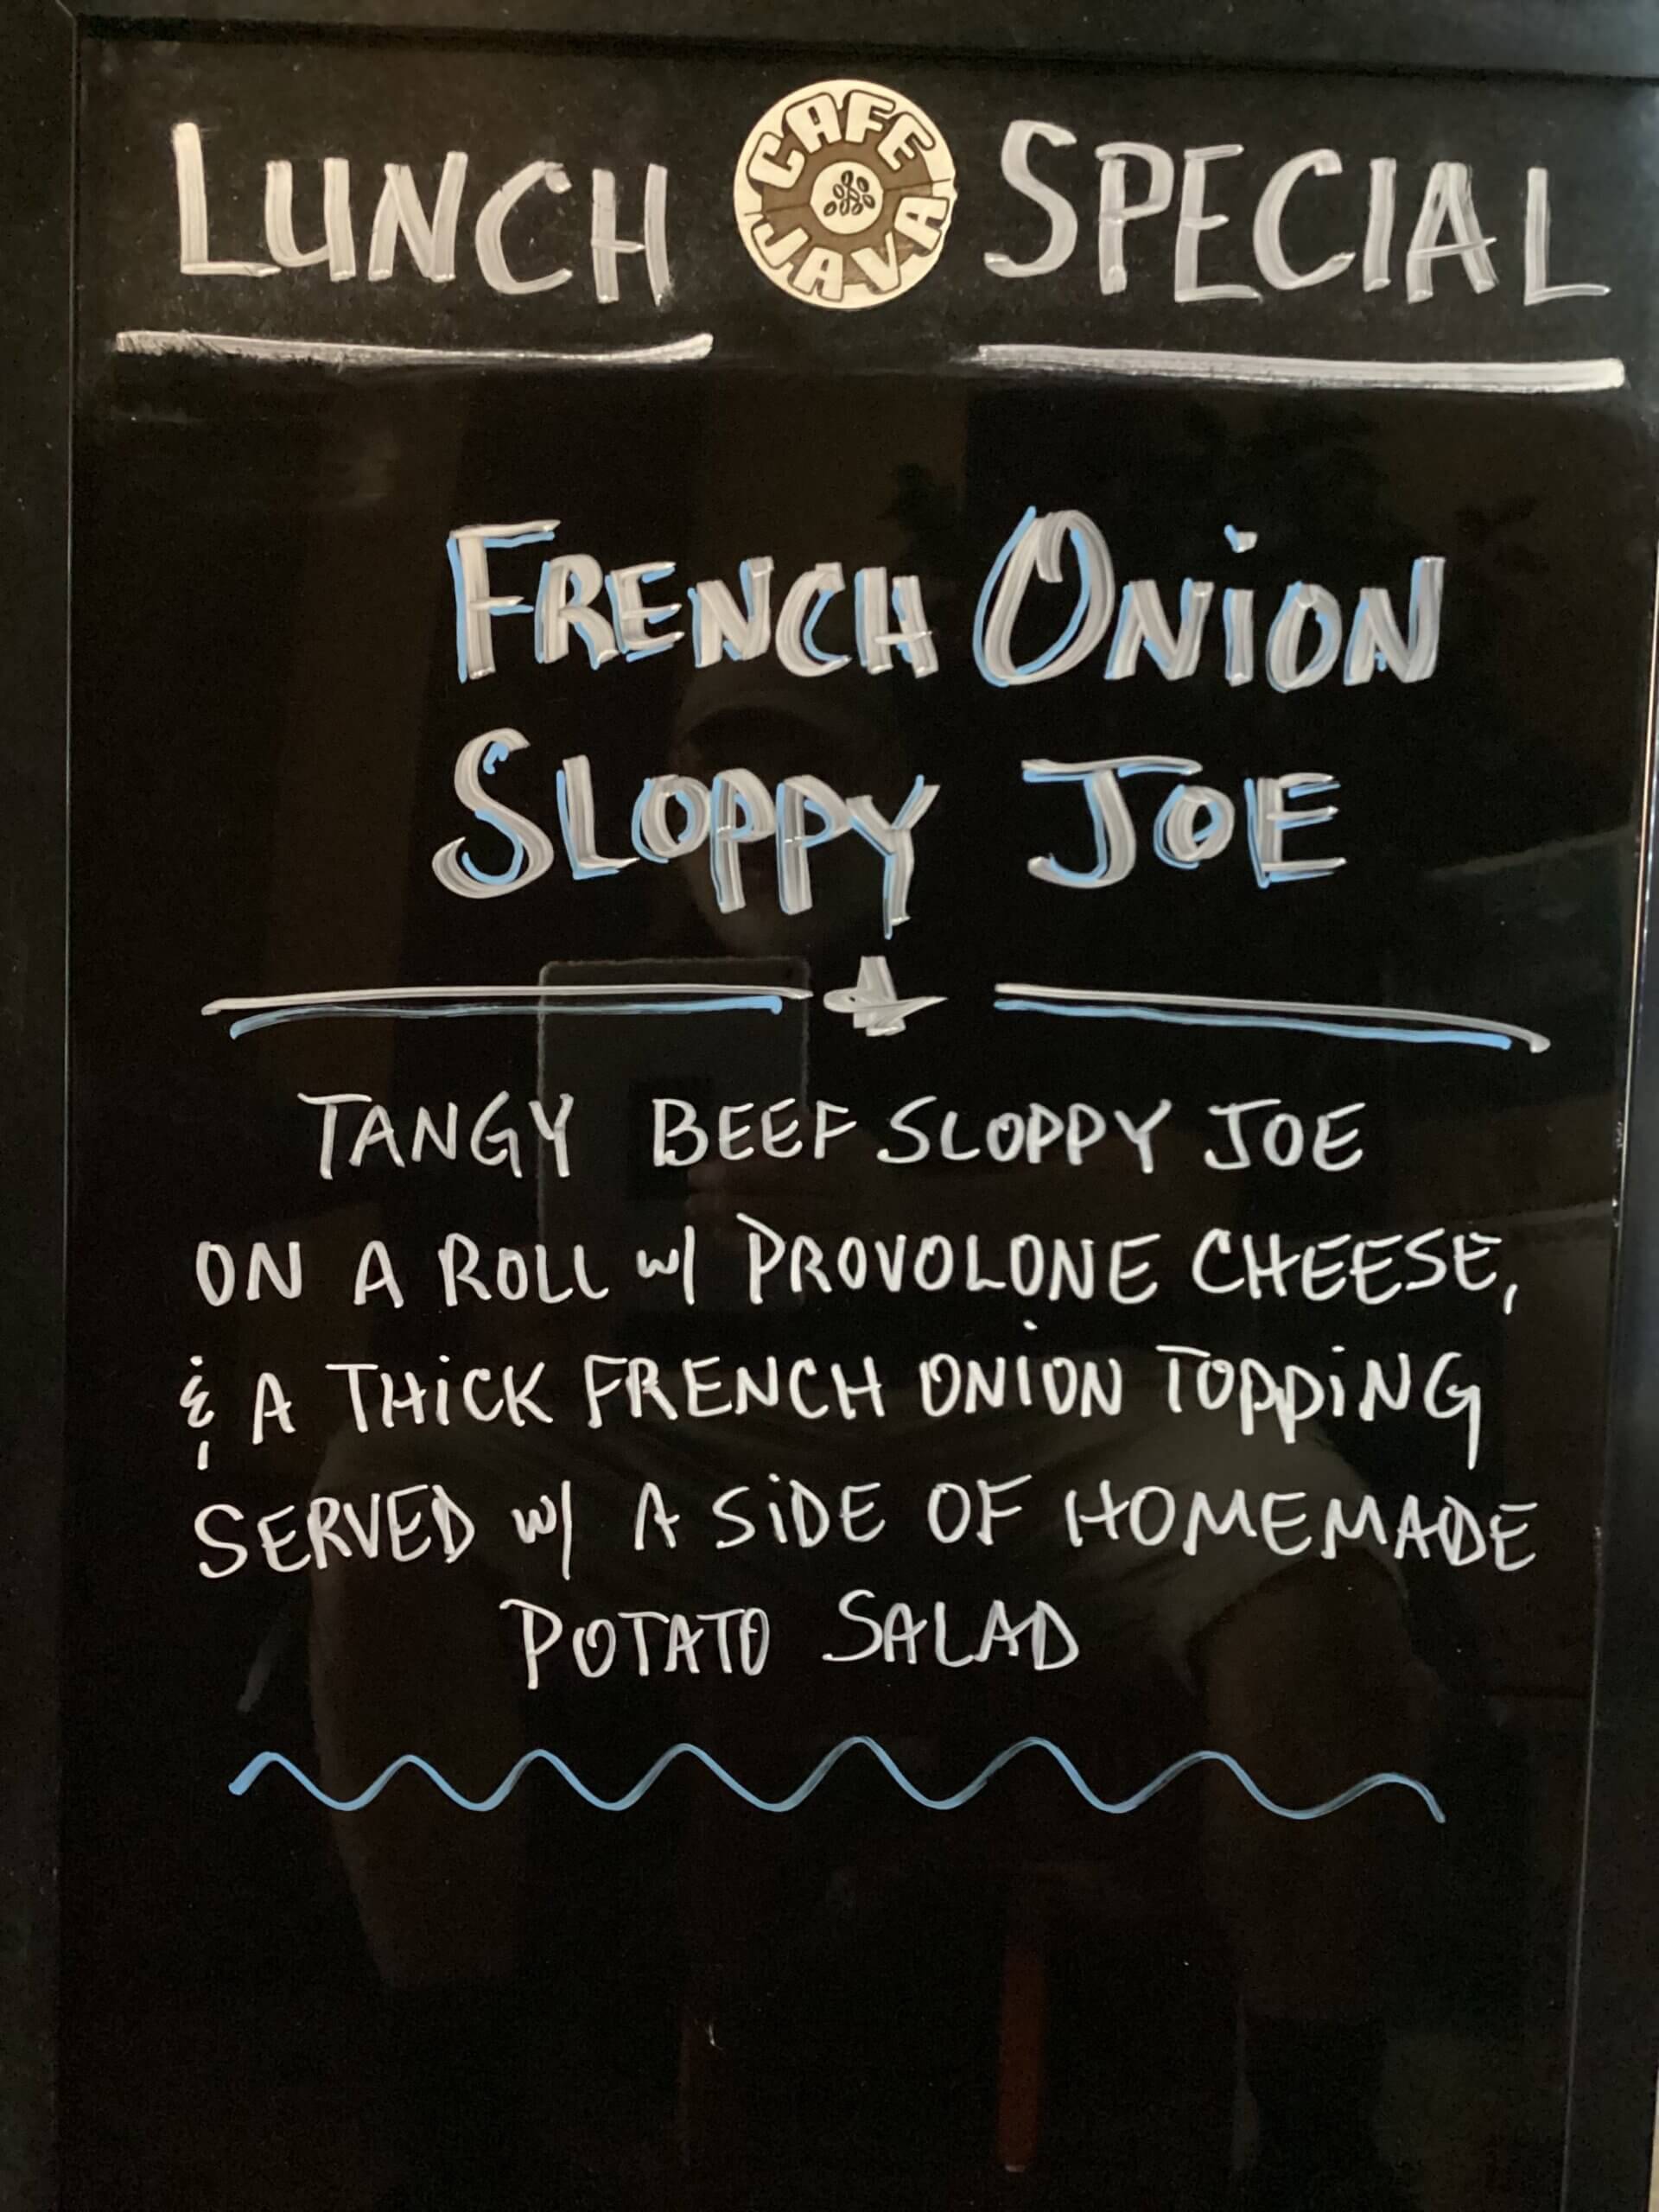 LUNCH CAFE JAVA SPECIAL
FRENCH ONiON
SLOPPY JOE
TANGY BEEF SLOPPY JOE
ON A ROLL w/ PROVOLONE CHEESE,
& A THiCK FRENCH ONiON TOPPiNG
SERVED w/ A SiDE OF HOMEMADE
POTATO SALAD